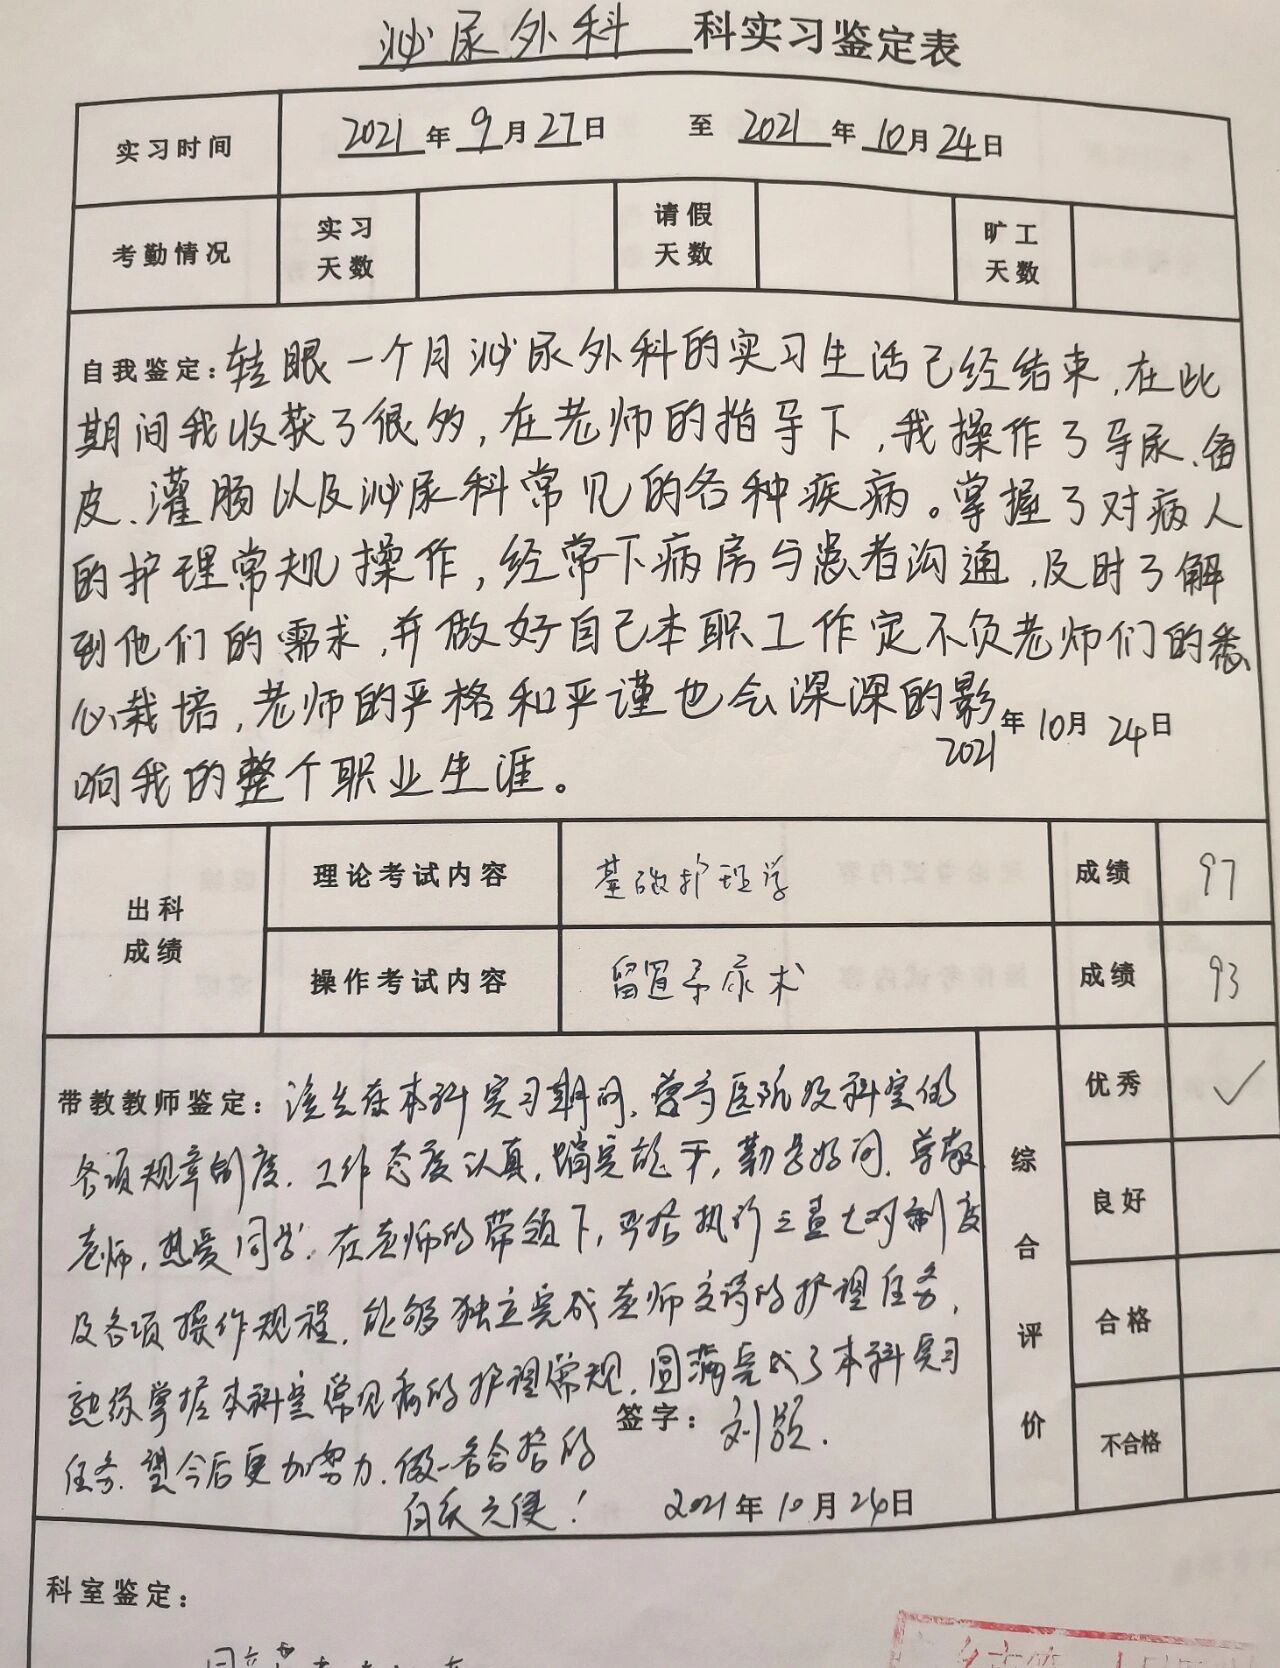 泌尿外科 科实习鉴定表
实习时间 2021年9月27日 至 2021年10月24日
考勤情况 实习天数 请假天数 旷工天数
自我鉴定：转眼一个月泌尿外科的实习生活已经结束，在此
期间我收获了很多，在老师的指导下，我操作了导尿、备
皮、灌肠以及泌尿科常见的各种疾病。掌握了对病人
的护理常规操作，经常下病房与患者沟通，及时了解
到他们的需求，并做好自己本职工作定不负老师们的悉
心栽培，老师的严格和严谨也会深深的影
响我的整个职业生涯。
2021年10月24日
出科成绩 理论考试内容 基础护理学 成绩 97
操作考试内容 留置导尿术 成绩 93
带教教师鉴定：该生在本科实习期间，遵守医院及科室的
各项规章制度，工作态度认真，踏实能干，勤学好问，尊敬
老师，热爱同学，在老师的带领下，严格执行三查七对制度
及各项操作规程，能够独立完成老师交待的护理任务，
熟练掌握本科室常见病的护理常规，圆满完成了本科实习
任务，望今后更加努力，做一名合格的
白衣天使！
签字：刘颖.
2021年10月24日
综合评价
优秀 ✓
良好
合格
不合格
科室鉴定：